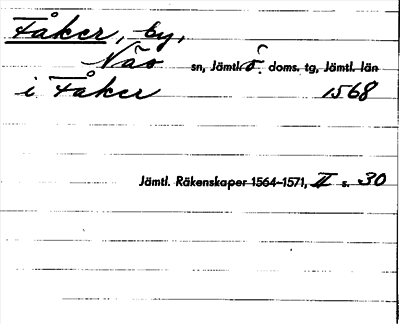 Fåker, by,
Näs sn, Jämtl. ö. doms. tg, Jämtl. län
i Fåker 1568
Jämtl. Räkenskaper 1564-1571, II s. 30